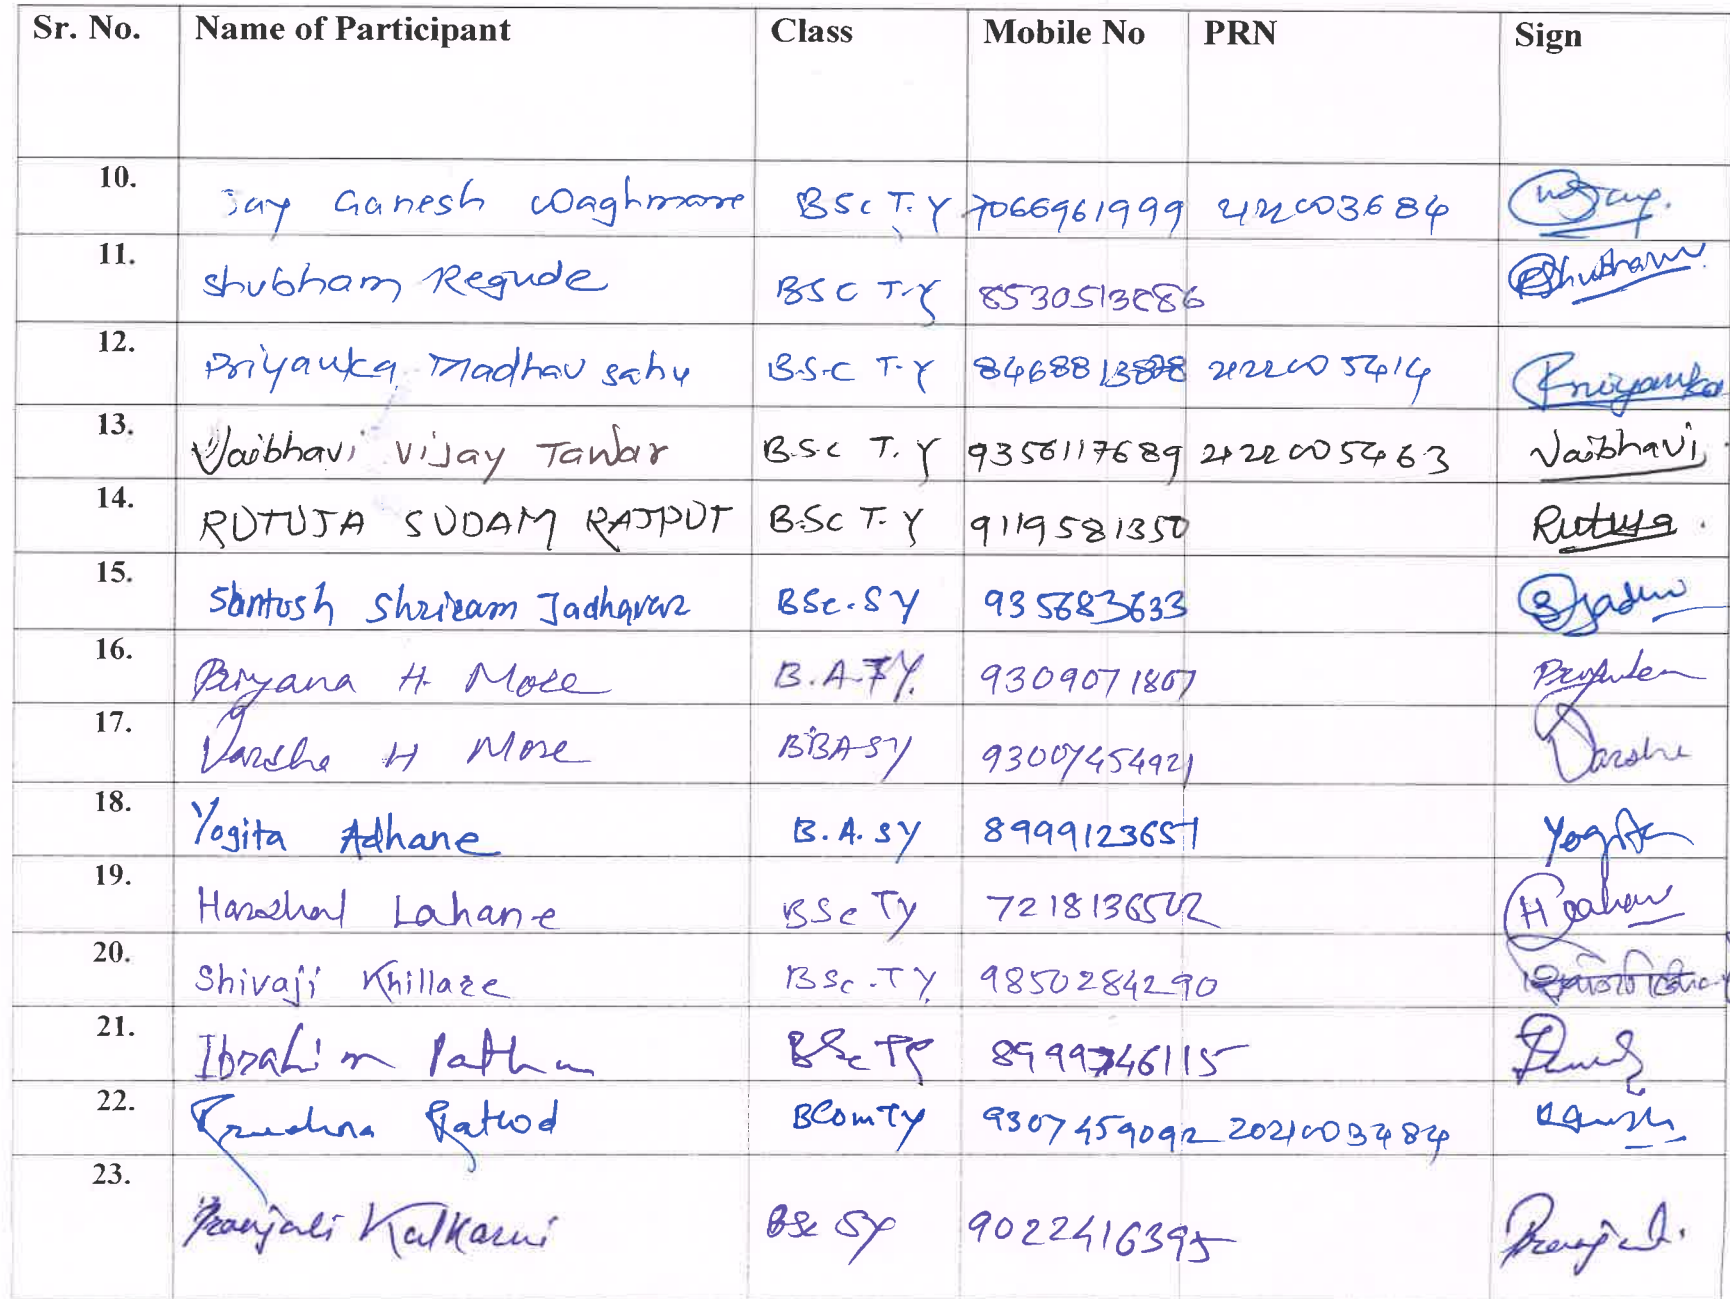 Sr. No. Name of Participant Class Mobile No PRN Sign
10. Jay Ganesh Waghmare BSc T.Y 7066961999
11. Shubham Regude BSC T.Y
12. Priyanka Madhav Sahu B.S.C T.Y Priyanka
13. Vaibhavi Vijay Tawar B.Sc T.Y 9356117689 Vaibhavi
14. RUTUJA SUDAM RAJPUT B.Sc T.Y 9119581350 Rutuja
15. Santosh Shriram Jadhavar BSc.SY 935683633
16. H. More 9309071807
17. Varsha H More BBA SY Varsha
18. Yogita Adhane B.A. SY 8999123651 Yogita
19. Harshal Lahane BSc TY
20. Shivaji Khillare BSc.TY 9850284290
21. Ibrahim Pathan BSc TY 8999746115
22. Rathod BComTY 9307459092
23. Pranjali Kulkarni BSc SY 9022416395 Pranjali